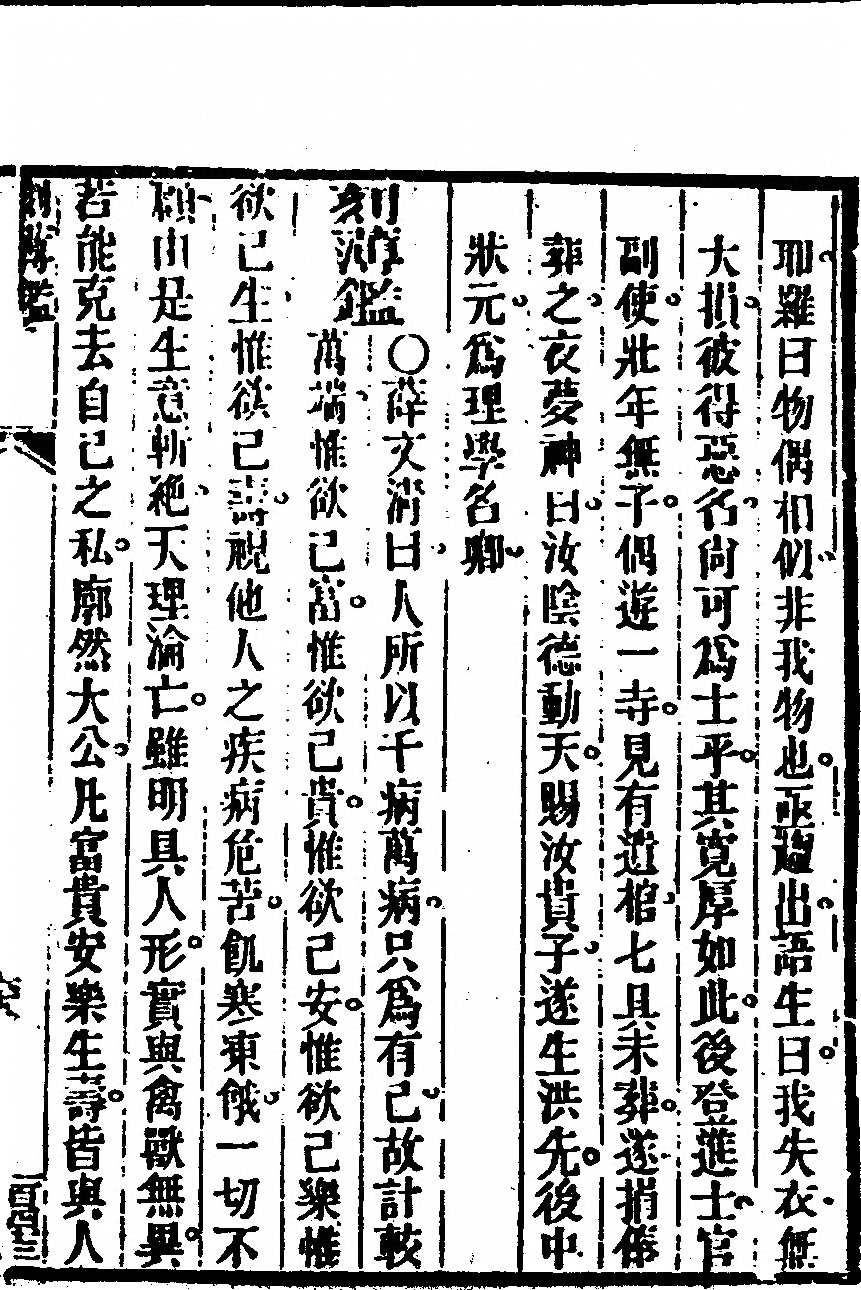 耶羅曰物偶相似非我物也亟趨出語生曰我失衣無
大損彼得惡名尚可為士乎其寬厚如此後登進士官
副使壯年無子偶遊一寺見有遺棺七具未葬遂捐俸
葬之衣夢神曰汝陰德動天賜汝貴子遂生洪先後中
狀元為理學名卿
刻薄鑑〇薛文清曰人所以千病萬病只為有己故計較
萬端惟欲己富惟欲己貴惟欲己安惟欲己樂惟
欲己生惟欲己壽視他人之疾病危苦飢寒凍餓一切不
顧由是生意斬絕天理淪亡雖明具人形實與禽獸無異
若能克去自己之私廓然大公凡富貴安樂生壽皆與人
刻薄鑑